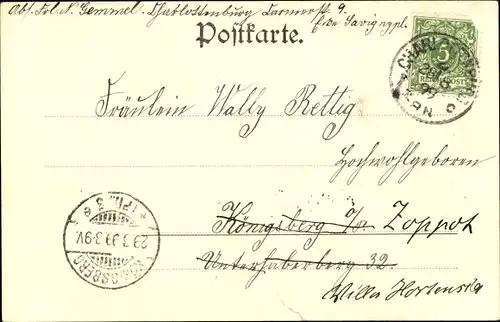 Abs. Frl. N. Gemmel. Charlottenburg Carmerstr. 9.
Ecke Savignypl.
Postkarte.
CHARLOTTENBURG
5
REICHSPOST
Fräulein Wally Rettig
Hochwohlgeboren
Königsberg i/Pr Zoppot
Unterhaberberg 32.
Villa Hortensia
KÖNIGSBERG
29.3.99.3-9V.